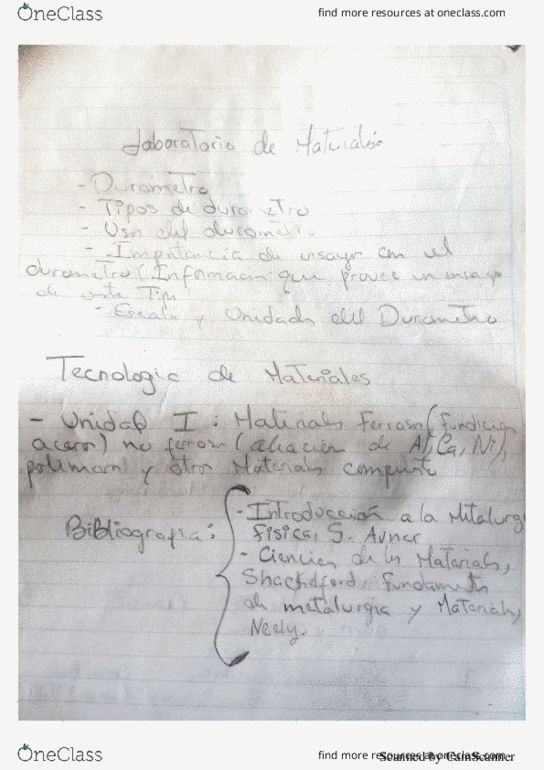 OneClass
find more resources at oneclass.com
Laboratorio de Materiales
- Durometro
- Tipos de durometro
- Uso del durometro
- Importancia de ensayo con el
durometro (Informacion que provee un ensayo
de este Tipo
- Escala y Unidades del Durometro
Tecnologia de Materiales
- Unidad I: Materiales Ferrosos (fundicion
aceros) no ferrosos (aleacion de Al, Ca, Ni),
polimeros y otros Materiales compuesto
Bibliografia:
- Introducción a la Metalurg
Fisica, S. Avner
- Ciencias de los Materiales,
Shackelford, Fundamentos
de metalurgia y Materiales,
Neely.
OneClass
find more resources at oneclass.com
Scanned by CamScanner